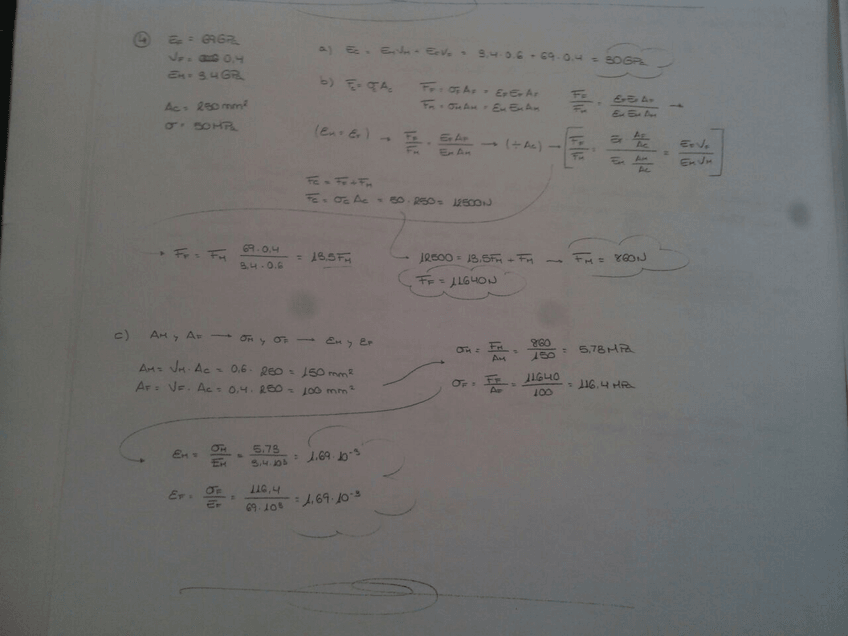 ④ EF = 69 GPa
VF = 0,4
EM = 3.4 GPa
AC = 250 mm²
σ = 50 MPa
a) EC = EM VM + EF VF = 3.4 · 0.6 + 69 · 0.4 = 30 GPa
b) FC = σ AC FF = σF AF = EF εF AF
FM = σM AM = EM εM AM
FF/FM = EF εF AF / EM εM AM →
(εM = εF) → FF/FM = EF AF / EM AM → (÷ AC) → [FF/FM = EF AF/AC / EM AM/AC = EF VF / EM VM]
FC = FF + FM
FC = σC AC = 50 · 250 = 12500 N
→ FF = FM 69 · 0,4 / 3.4 · 0.6 = 13.5 FM
→ 12500 = 13.5 FM + FM → FM = 860 N
FF = 11640 N
c) AM y AF → σM y σF → εM y εF
AM = VM · AC = 0,6 · 250 = 150 mm²
AF = VF · AC = 0.4 · 250 = 100 mm²
σM = FM/AM = 860/150 = 5.73 MPa
σF = FF/AF = 11640/100 = 116.4 MPa
εM = σM/EM = 5.73 / 3.4 · 10³ = 1,69 · 10⁻³
εF = σF/EF = 116,4 / 69 · 10³ = 1,69 · 10⁻³